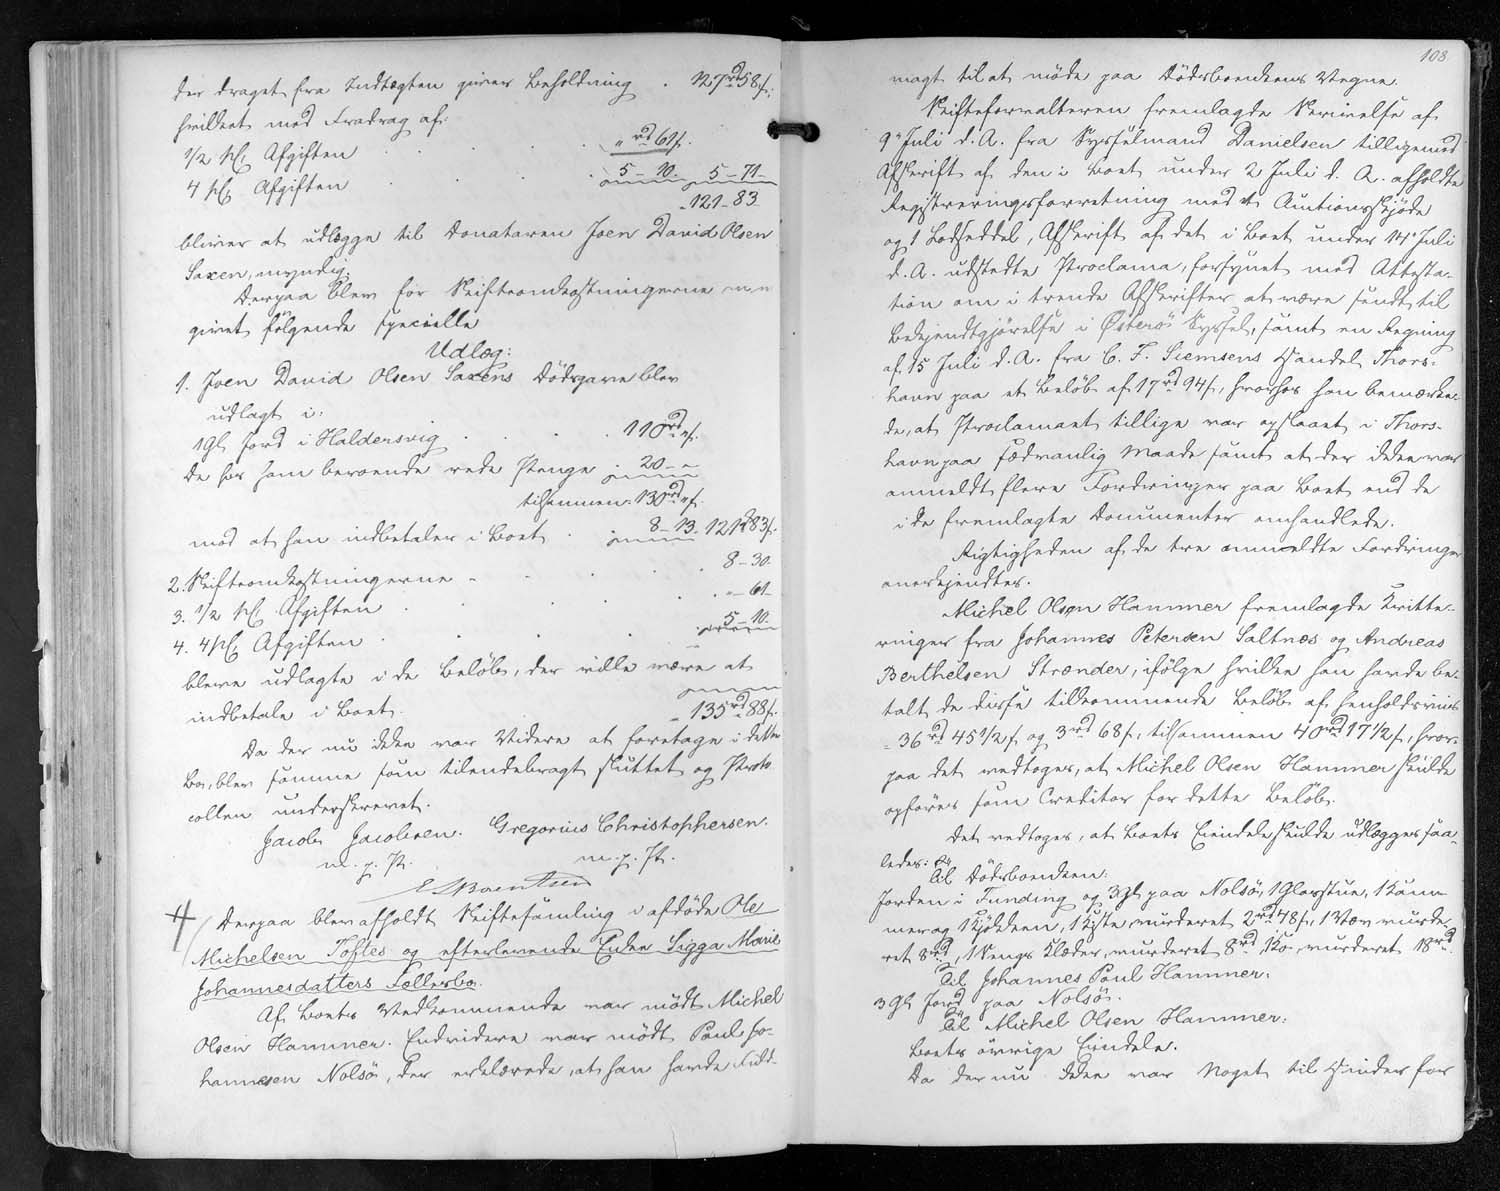 der draget fra Indtægten giver Beholdning . 127rd 58s,
hvilket med Fradrag af:
1/2 pCt Afgiften . . . . „rd 61s.
4 pCt Afgiften . . . . 5–10. 5–71–
121–83–
bliver at udlægge til Donataren Joen David Olsen
Saxen, myndig.
Derpaa blev for Skifteomkostningerne
givet følgende specielle
Udlæg:
1. Joen David Olsen Saxens Dødsgave blev
udlagt i:
1 Gl. Jord i Haldersvig . . . . 110rd „s.
de hos ham beroende rede Penge . 20–„–
tilsammen 130rd „s.
mod at han indbetaler i Boet . 8–13. 121rd 83s.
2. Skifteomkostningerne – . . . 8–30.
3. 1/2 pCt Afgiften . . . . „–61–
4. 4 pCt Afgiften . . . . 5–10.
bleve udlagte i de Beløb, der ville være at
indbetale i Boet. 135rd 88s.
Da der nu ikke var Videre at foretage i dette
Bo, blev samme som tilendebragt sluttet og Proto-
collen underskrevet.
Jacob Jacobsen. Gregorius Christophersen.
m. p. P. m. p. P.
Derpaa blev afholdt Skiftesamling i afdøde Ole
Michelsen Toftes og efterlevende Enke Sigga Marie
Johannesdatters Fællesbo.
Af Boets Vedkommende var mødt Michel
Olsen Hammer. Endvidere var mødt Poul Jo-
hannesen Nolsö, der erklærede, at han havde Fuld-
108
magt til at møde paa Dødsboenkens Vegne.
Skifteforvalteren fremlagde Skrivelse af
9' Juli d. A. fra Sysselmand Danielsen tilligemed
Afskrift af den i Boet under 2 Juli d. A. afholdte
Registreringsforretning med et Auctionsskjøde
og 1 Lodseddel, Afskrift af det i Boet under 14' Juli
d. A. udstedte Proclama, forsynet med Attesta-
tion om i trende Afskrifter at være sendt til
Bekjendtgjørelse i Østerö Syssel, samt en Regning
af 15 Juli d. A. fra C. F. Siemsens Handel Thors-
havn paa et Beløb af 17rd 94s, hvorhos han bemærke-
de, at Proclamaet tillige var opslaaet i Thors-
havn paa sædvanlig Maade samt at der ikke var
anmeldt flere Fordringer paa Boet end de
i de fremlagte Documenter omhandlede.
Rigtigheden af de tre anmeldte Fordringer
anerkjendtes.
Michel Olsen Hammer fremlagde Kvitte-
ringer fra Johannes Petersen Saltnæs og Andreas
Berthelsen Strænder, ifølge hvilke han havde be-
talt de disse tilkommende Beløb af henholdsviis
36rd 45 1/2s og 3rd 68s, tilsammen 40rd 17 1/2s, hvor-
paa det vedtoges, at Michel Olsen Hammer skulde
opføres som Creditor for dette Beløb.
Det vedtoges, at Boets Eiendele skulde udlægges saa-
ledes: Til Dødsboenken:
Jorden i Funding og 3 Gl. paa Nolsö, 1 Glasstue, 1 Kam-
mer og 1 Kjøkken, 1 Kiste, vurderet 2rd 48s, 1 Væv vurde-
ret 8rd, 1 Sengs Klæder, vurderet 8rd, 1 Ko, vurderet 18rd.
Til Johannes Poul Hammer:
3 Gl. Jord paa Nolsö.
Til Michel Olsen Hammer:
Boets øvrige Eiendele.
Da der nu ikke var Noget til Hinder for